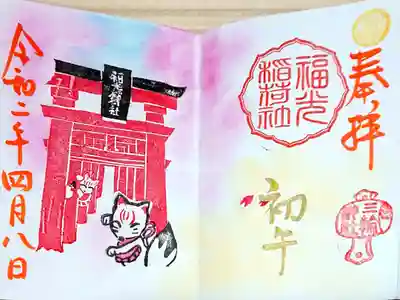 奉拝
三輪
福光
稲荷社
初午
福光稲荷社
令和二年四月八日